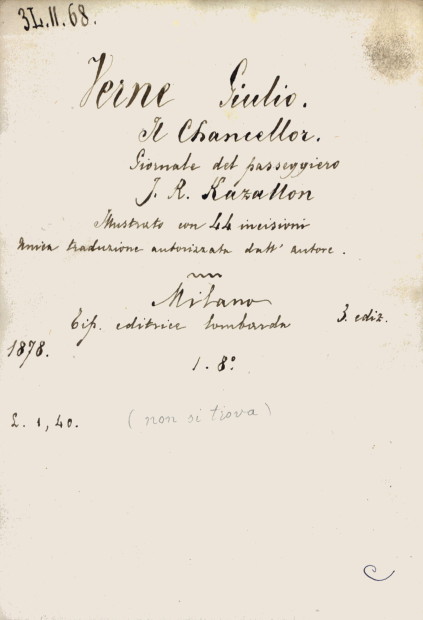 3L.II.68.
Verne Giulio.
Il Chancellor.
Giornale del passeggiero
J. R. Kazallon
Illustrato con 44 incisioni
Unica traduzione autorizzata dall' autore.
Milano
Tip. editrice lombarda 3. ediz.
1878.
1. 8º
L. 1,40. (non si trova)
C